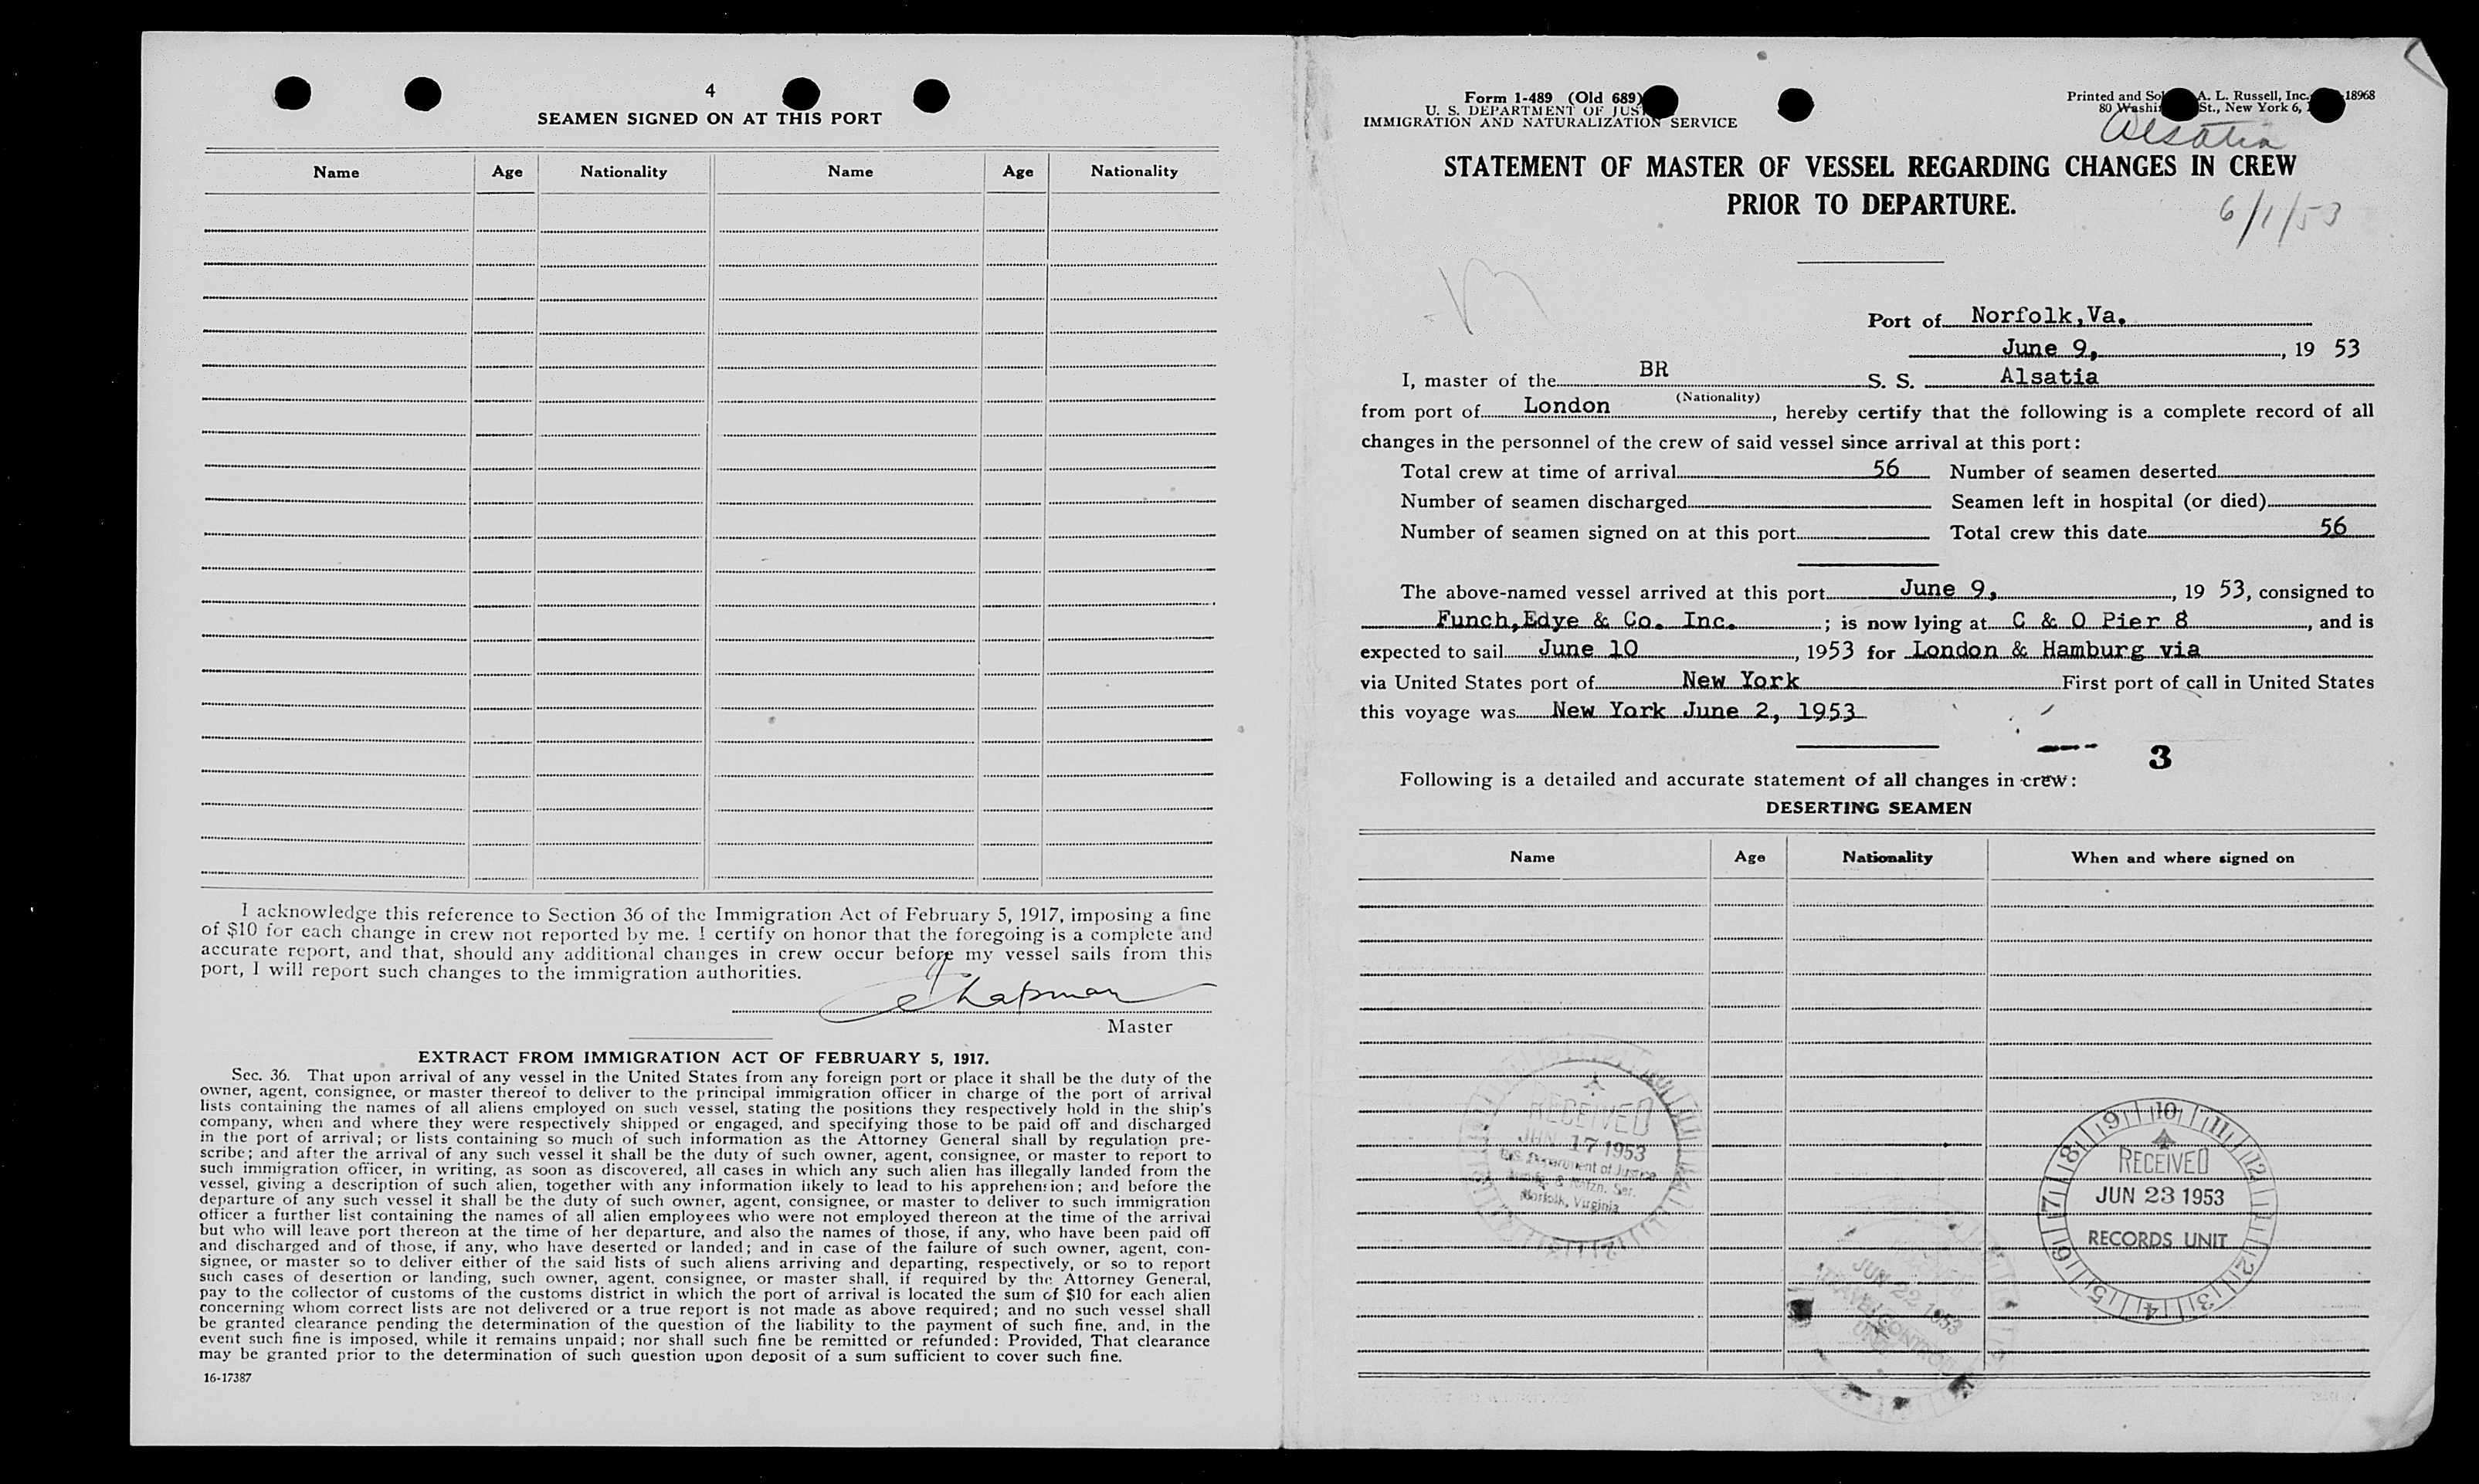 4
SEAMEN SIGNED ON AT THIS PORT
Name Age Nationality Name Age Nationality
I acknowledge this reference to Section 36 of the Immigration Act of February 5, 1917, imposing a fine
of $10 for each change in crew not reported by me. I certify on honor that the foregoing is a complete and
accurate report, and that, should any additional changes in crew occur before my vessel sails from this
port, I will report such changes to the immigration authorities.
Chapman
Master
EXTRACT FROM IMMIGRATION ACT OF FEBRUARY 5, 1917.
Sec. 36. That upon arrival of any vessel in the United States from any foreign port or place it shall be the duty of the
owner, agent, consignee, or master thereof to deliver to the principal immigration officer in charge of the port of arrival
lists containing the names of all aliens employed on such vessel, stating the positions they respectively hold in the ship's
company, when and where they were respectively shipped or engaged, and specifying those to be paid off and discharged
in the port of arrival; or lists containing so much of such information as the Attorney General shall by regulation pre-
scribe; and after the arrival of any such vessel it shall be the duty of such owner, agent, consignee, or master to report to
such immigration officer, in writing, as soon as discovered, all cases in which any such alien has illegally landed from the
vessel, giving a description of such alien, together with any information likely to lead to his apprehension; and before the
departure of any such vessel it shall be the duty of such owner, agent, consignee, or master to deliver to such immigration
officer a further list containing the names of all alien employees who were not employed thereon at the time of the arrival
but who will leave port thereon at the time of her departure, and also the names of those, if any, who have been paid off
and discharged and of those, if any, who have deserted or landed; and in case of the failure of such owner, agent, con-
signee, or master so to deliver either of the said lists of such aliens arriving and departing, respectively, or so to report
such cases of desertion or landing, such owner, agent, consignee, or master shall, if required by the Attorney General,
pay to the collector of customs of the customs district in which the port of arrival is located the sum of $10 for each alien
concerning whom correct lists are not delivered or a true report is not made as above required; and no such vessel shall
be granted clearance pending the determination of the question of the liability to the payment of such fine, and, in the
event such fine is imposed, while it remains unpaid; nor shall such fine be remitted or refunded: Provided, That clearance
may be granted prior to the determination of such question upon deposit of a sum sufficient to cover such fine.
16-17387
Form 1-489 (Old 689)
U. S. DEPARTMENT OF JUS
IMMIGRATION AND NATURALIZATION SERVICE
Printed and So A. L. Russell, Inc. 18968
80 Washi St., New York 6,
Alsatia
STATEMENT OF MASTER OF VESSEL REGARDING CHANGES IN CREW
PRIOR TO DEPARTURE.
6/1/53
Port of Norfolk,Va.
June 9, , 19 53
I, master of the BR S. S. Alsatia
(Nationality)
from port of London , hereby certify that the following is a complete record of all
changes in the personnel of the crew of said vessel since arrival at this port:
Total crew at time of arrival 56 Number of seamen deserted
Number of seamen discharged Seamen left in hospital (or died)
Number of seamen signed on at this port Total crew this date 56
The above-named vessel arrived at this port June 9, , 19 53, consigned to
Funch,Edye & Co. Inc. ; is now lying at C & O Pier 8 , and is
expected to sail June 10 , 1953 for London & Hamburg via
via United States port of New York First port of call in United States
this voyage was New York June 2, 1953
3
Following is a detailed and accurate statement of all changes in crew:
DESERTING SEAMEN
Name Age Nationality When and where signed on
RECEIVED
JUN 17 1953
U.S. Department of Justice
Immig. & Natzn. Ser.
Norfolk, Virginia
JUN 22 1953
TRAVEL CONTROL
UNIT
9 10 11 12 1 2 3 4 5 6 7 8
RECEIVED
JUN 23 1953
RECORDS UNIT